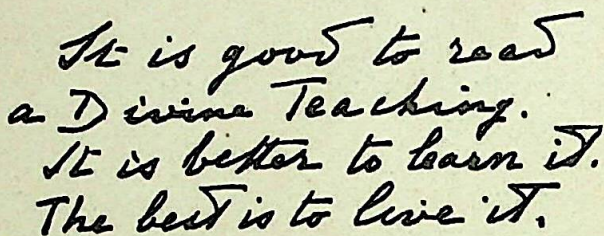 It is good to read
a Divine Teaching.
It is better to learn it.
The best is to live it.